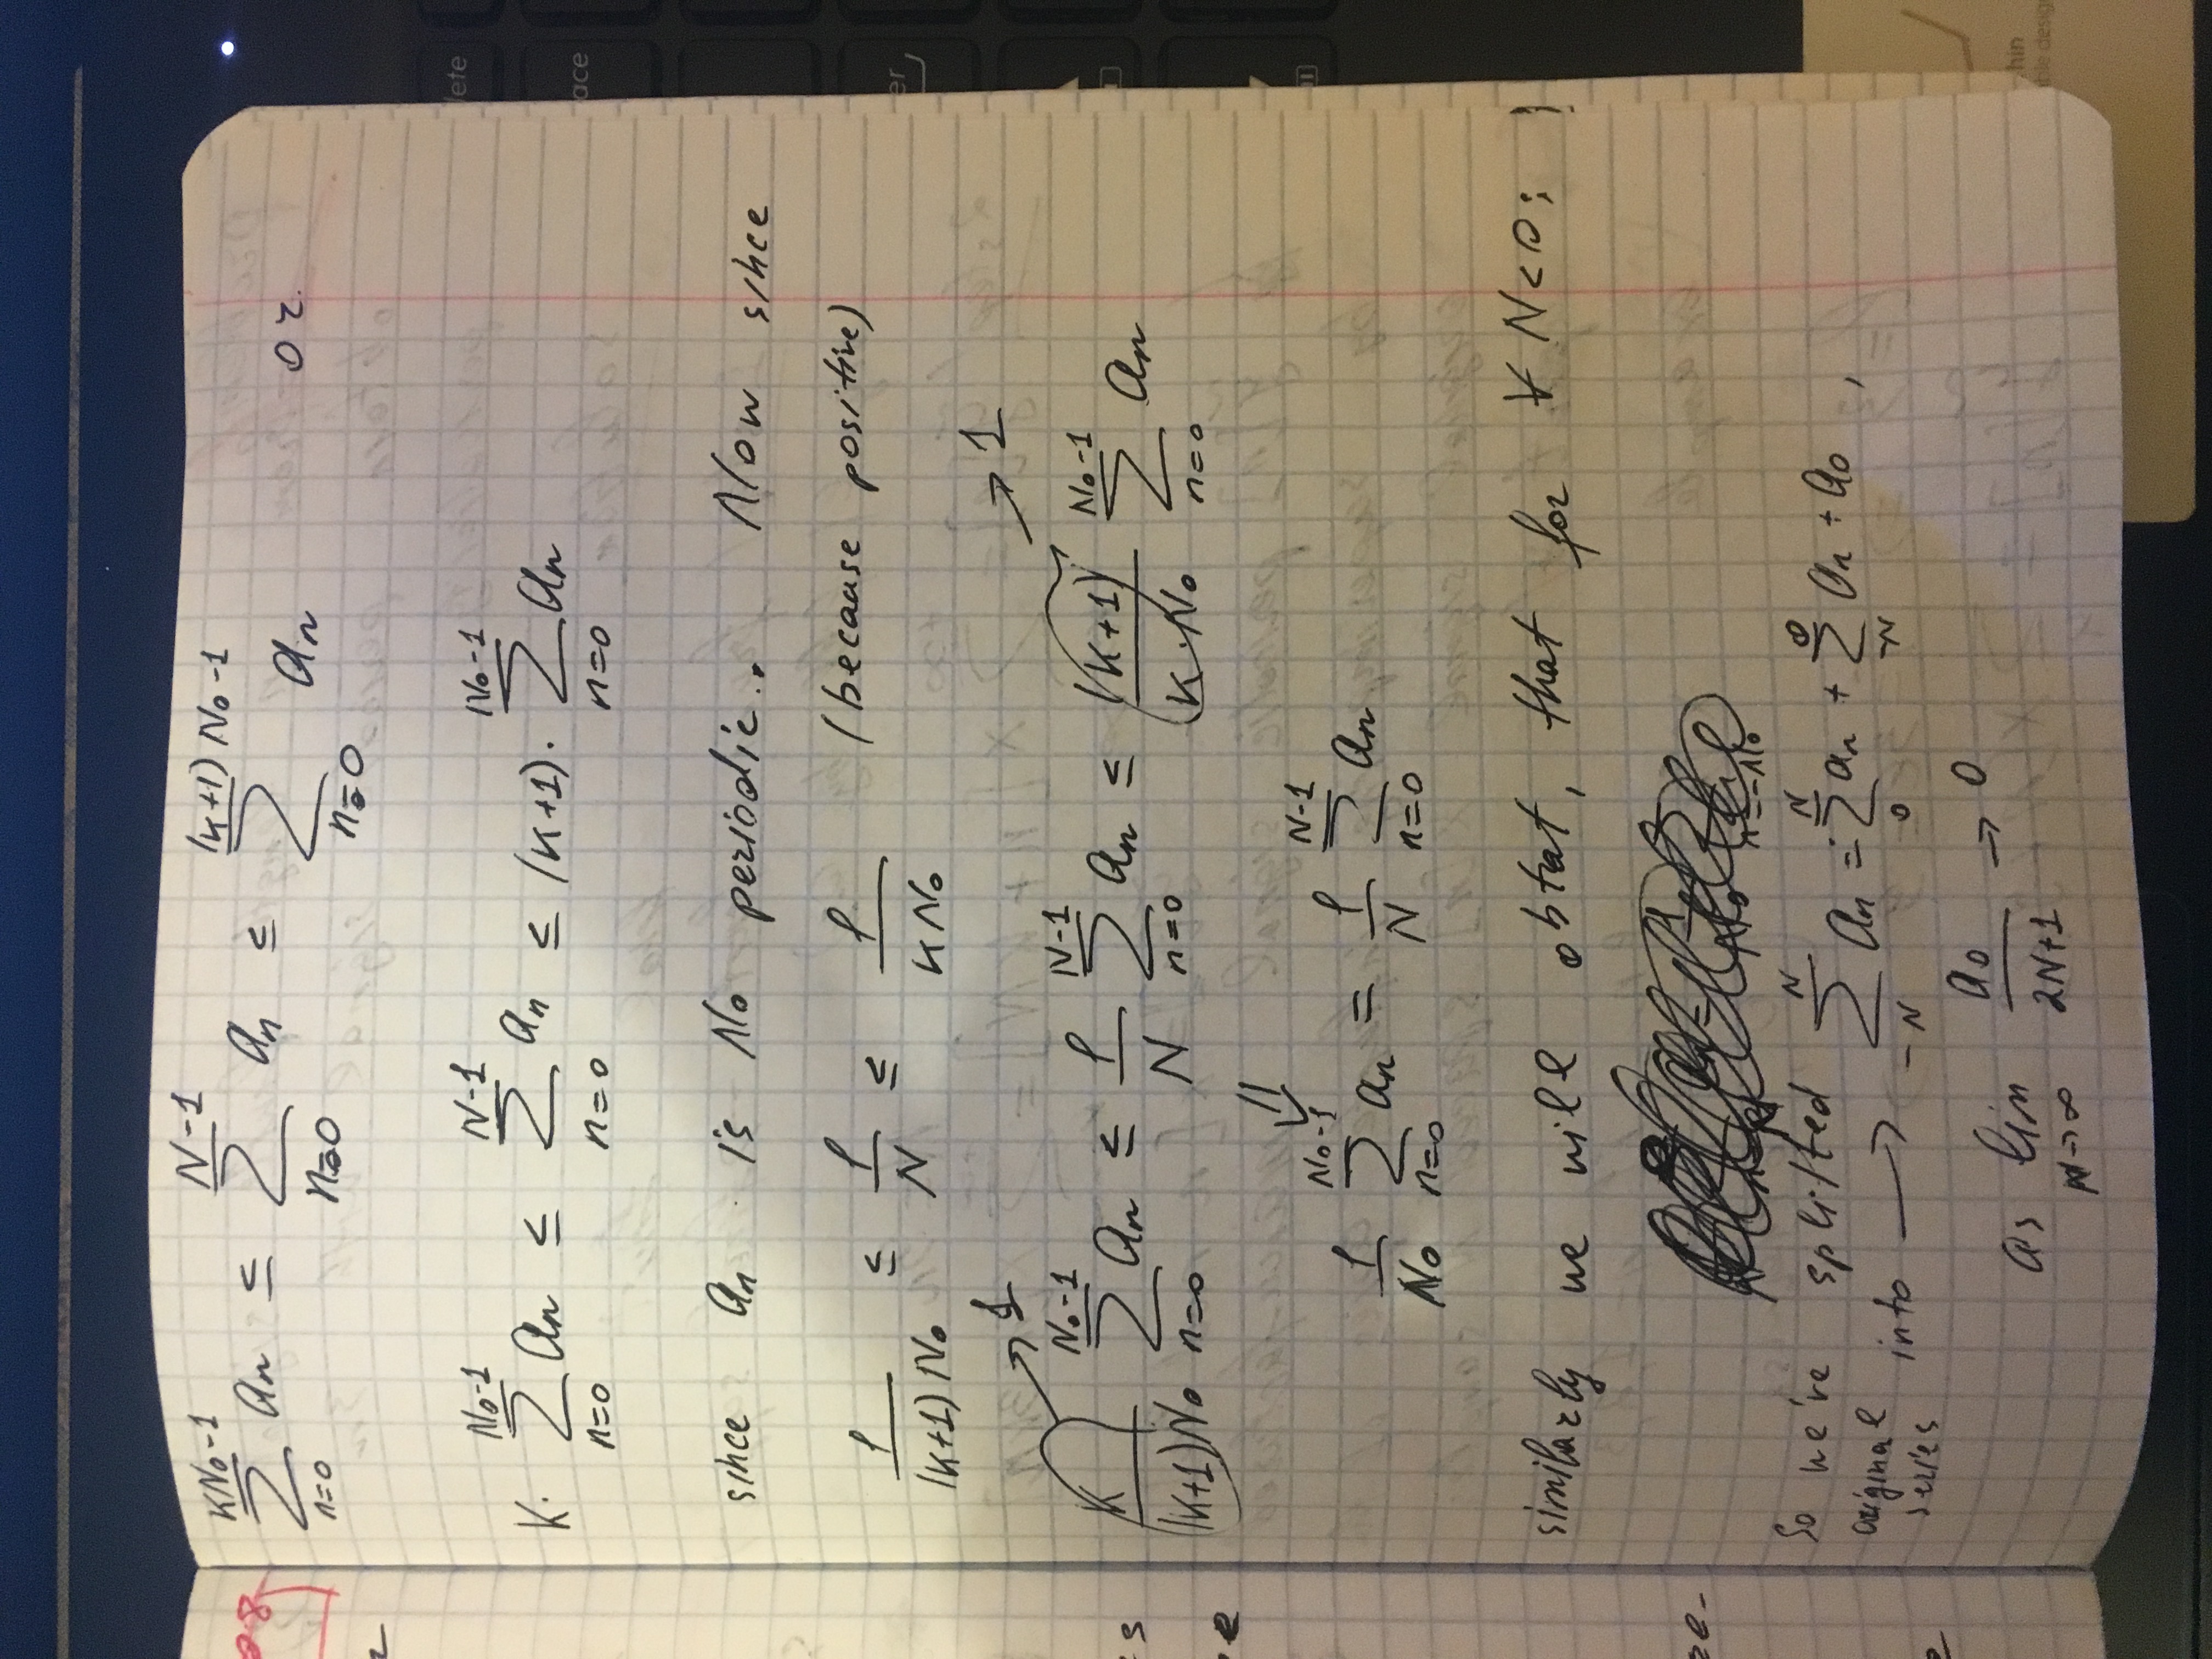 $\sum_{n=0}^{KN_0-1} a_n \leq \sum_{n=0}^{N-1} a_n \leq \sum_{n=0}^{(K+1)N_0-1} a_n$ or.
$K \cdot \sum_{n=0}^{N_0-1} a_n \leq \sum_{n=0}^{N-1} a_n \leq (K+1) \cdot \sum_{n=0}^{N_0-1} a_n$
since $a_n$ is $N_0$ periodic.. Now since
$\frac{1}{(K+1)N_0} \leq \frac{1}{N} \leq \frac{1}{KN_0}$ (because positive)
→ 1 → 1
$\frac{K}{(K+1)N_0} \sum_{n=0}^{N_0-1} a_n \leq \frac{1}{N} \sum_{n=0}^{N-1} a_n \leq \frac{(K+1)}{K \cdot N_0} \sum_{n=0}^{N_0-1} a_n$
⇓
$\frac{1}{N_0} \sum_{n=0}^{N_0-1} a_n = \frac{1}{N} \sum_{n=0}^{N-1} a_n$
similarly we will obtat, that for ∀ N<0;
So we've splitted $\sum_{-N}^{N} a_n = \sum_{0}^{N} a_n + \sum_{-N}^{0} a_n + a_0$ ,
original
series into →
as $\lim_{N \to \infty} \frac{a_0}{2N+1} \to 0$
lete
ace
er
hin
ble desig